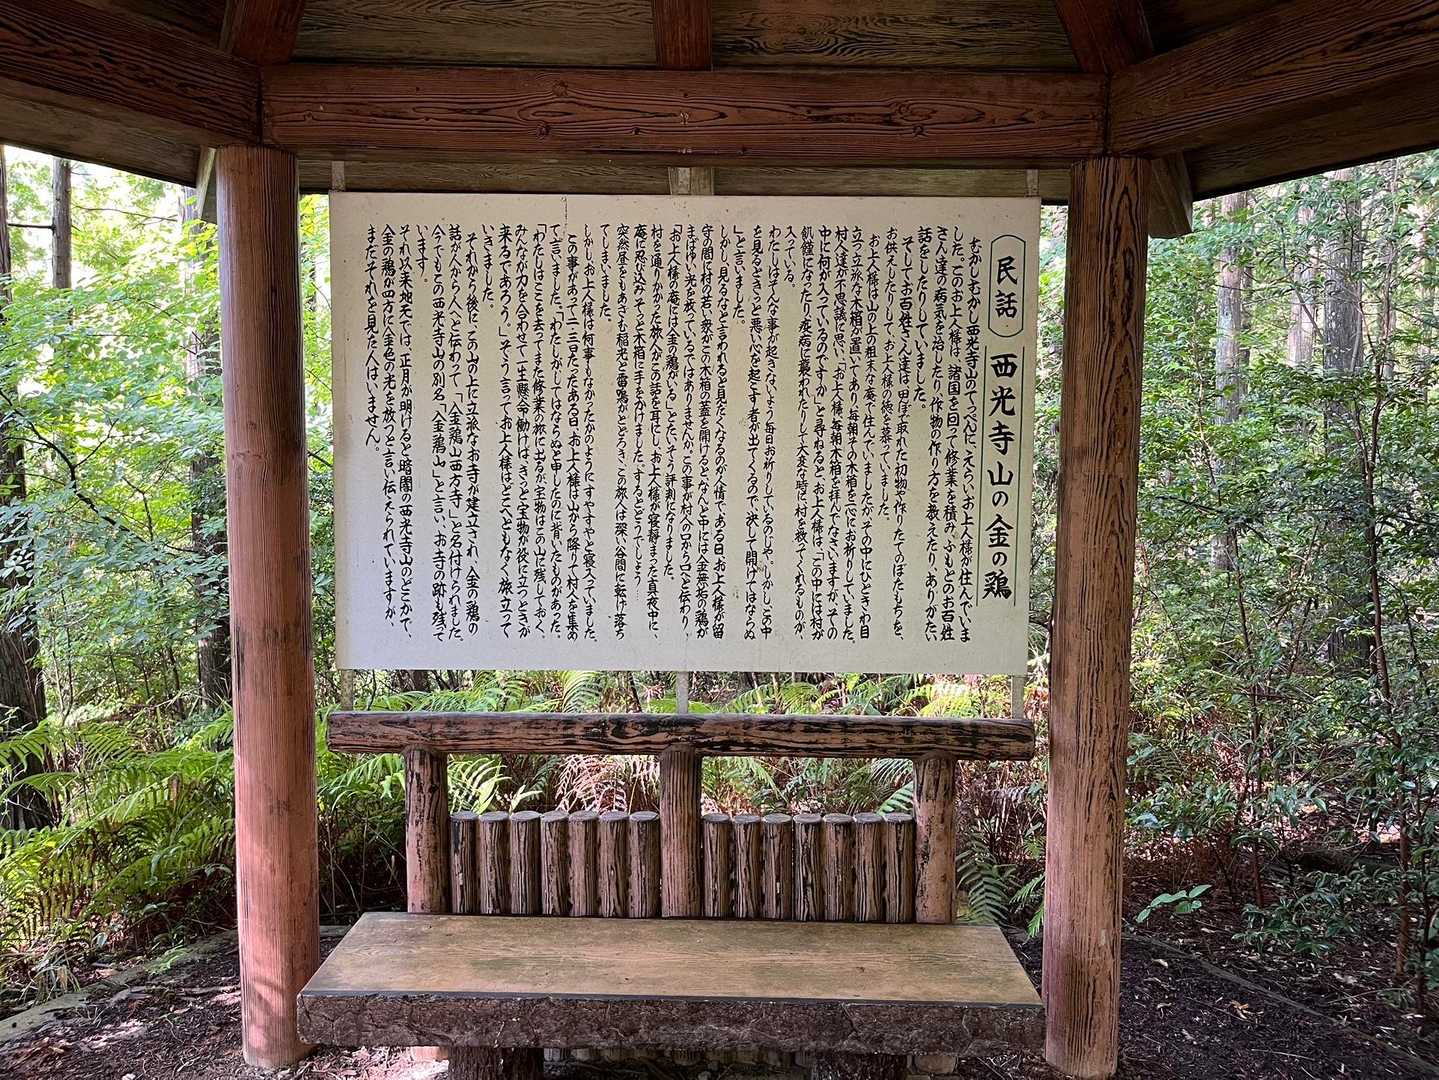 民話
西光寺山の金の鶏
むかしむかし西光寺山のてっぺんに、えらいお上人様が住んでいま
した。このお上人様は、諸国を回って修業を積み、ふもとのお百姓
さん達の病気を治したり、作物の作り方を教えたり、ありがたい
話をしたりしていました。
そしてお百姓さん達は、田ぼで取れた初物や作りたてのぼたもちを、
お供えしたりして、お上人様の徳を慕っていました。
お上人様は山の上の粗末な庵で住んでいましたが、その中にひときわ目
立つ立派な木箱が置いてあり、毎朝その木箱を一心にお祈りしていました。
村人達が不思議に思い、「お上人様、毎朝木箱を拝んでなさいますが、その
中に何が入っているのですか」と尋ねると、お上人様は、「この中には村が
飢饉になったり、疫病に襲われたりして大変な時に村を救ってくれるものが、
入っている。
わたしはそんな事が起きないよう毎日お祈りしているのじゃ。しかしこの中
を見るときっと悪い心を起こす者が出てくるので、決して開けてはならぬ
」と言いました。
しかし、見るなと言われると見たくなるのが人情で、ある日、お上人様が留
守の間に村の若い衆がこの木箱の蓋を開けると、なんと中には金無垢の鶏が
まばゆい光を放っているではありませんか。この事が村人の口から口へと伝わり、
「お上人様の庵には金の鶏がいる」とたいそう評判になりました。
村を通りかかった旅人がこの話を耳にし、お上人様が寝静まった真夜中に、
庵に忍び込みそっと木箱に手をかけました。するとどうでしょう…
突然昼をもあざむく稲光と雷鳴がとどろき、この旅人は深い谷間に転げ落ち
てしまいました。
しかし、お上人様は何事もなかったかのようにすやすやと寝入っていました。
この事があって二・三日たったある日、お上人様は山から降りて村人を集め
て言いました。「わたしがしてはならぬと申したのに背いたものがあった。
「わたしはここを去ってまた修業の旅に出るが、宝物はこの山に残しておく、
みんなが力を合わせて一生懸命働けば、きっと宝物が役に立つときが
来るであろう。」そう言ってお上人様はどこへともなく旅立って
いきました。
それから後に、この山の上に立派なお寺が建立され、金の鶏の
話が人から人へと伝わって、「金鶏山西方寺」と名付けられました。
今でもこの西光寺山の別名「金鶏山」と言い、お寺の跡も残って
います。
それ以来地元では、正月が明けると暗闇の西光寺山のどこかで、
金の鶏が四方に金色の光を放つと言い伝えられていますが、
まだそれを見た人はいません。